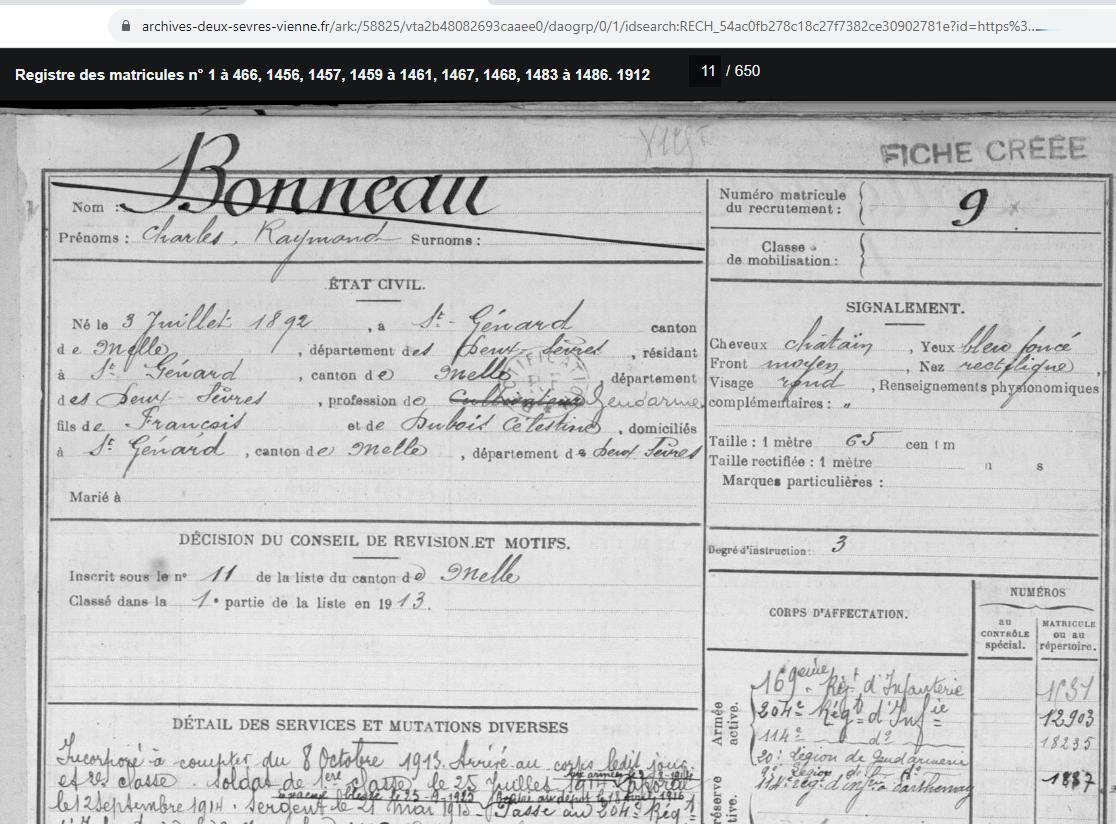 archives-deux-sevres-vienne.fr/ark:/58825/vta2b48082693caaee0/daogrp/0/1/idsearch:RECH_54ac0fb278c18c27f7382ce30902781e?id=https%3...
Registre des matricules n° 1 à 466, 1456, 1457, 1459 à 1461, 1467, 1468, 1483 à 1486. 1912
11 / 650
FICHE CRÉÉE
Nom : Bonneau
Prénoms : Charles, Raymond Surnoms :
Numéro matricule du recrutement : 9
Classe de mobilisation :
ÉTAT CIVIL.
Né le 3 Juillet 1892, à St-Génard canton
de Melle, département des Deux-Sèvres, résidant
à St Génard, canton de Melle département
des Deux-Sèvres, profession de Cultivateur Gendarme
fils de François et de Dubois Célestine, domiciliés
à St Génard, canton de Melle, département des Deux Sèvres
Marié à
SIGNALEMENT.
Cheveux châtain, Yeux bleu foncé
Front moyen, Nez rectiligne
Visage rond, Renseignements physionomiques
complémentaires : "
Taille : 1 mètre 65 centim
Taille rectifiée : 1 mètre
Marques particulières :
Degré d'instruction : 3
DÉCISION DU CONSEIL DE REVISION ET MOTIFS.
Inscrit sous le n° 11 de la liste du canton de Melle
Classé dans la 1e partie de la liste en 1913.
CORPS D'AFFECTATION.
NUMÉROS
au CONTRÔLE spécial.
MATRICULE ou au répertoire.
Armée active.
169eme Régt d'Infanterie
204e Régt d'Infie 12903
114e do 18235
20e Légion de Gendarmerie
9e Légion
114e Rég. d'Infie Parthenay 1887
réserve
DÉTAIL DES SERVICES ET MUTATIONS DIVERSES
Incorporé à compter du 8 Octobre 1913. Arrivé au corps ledit jour
et 2e classe. Soldat de 1ere classe le 25 Juillet
le 12 Septembre 1914. Sergent le 21 mai 1915. Passé au 204e Régt